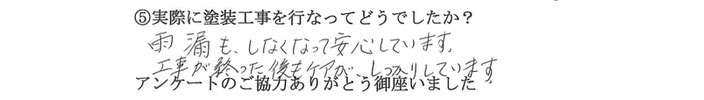 ⑤実際に塗装工事を行なってどうでしたか？
雨漏も、しなくなって安心しています。
工事が終った後もケアが、しっかりしています
アンケートのご協力ありがとう御座いました